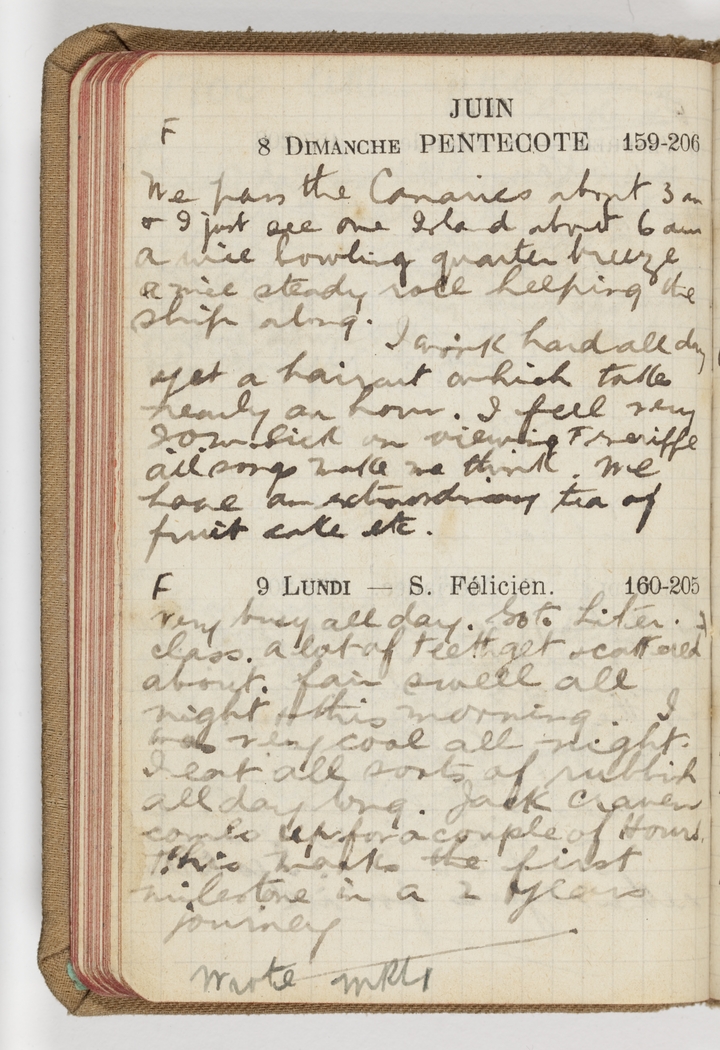 JUIN
F
8 DIMANCHE PENTECOTE 159-206
We pass the Canaries about 3 am
& I just see one Island about 6 am
a nice bowling quarter breeze
a nice steady roll helping the
ship along.
I work hard all day
get a haircut which takes
nearly an hour. I feel very
on viewing Teneriffe
all songs make me think. We
have an extraordinary tea of
fruit cake etc.
F
9 LUNDI — S. Félicien. 160-205
very busy all day. Go to
class. a lot of teeth get scattered
about. fair swell all
night & this morning. I
was very cool all night.
I eat all sorts of rubbish
all day long. Jack Craven
comes up for a couple of Hours.
This marks the first
milestone in a 2 years
journey
Wrote